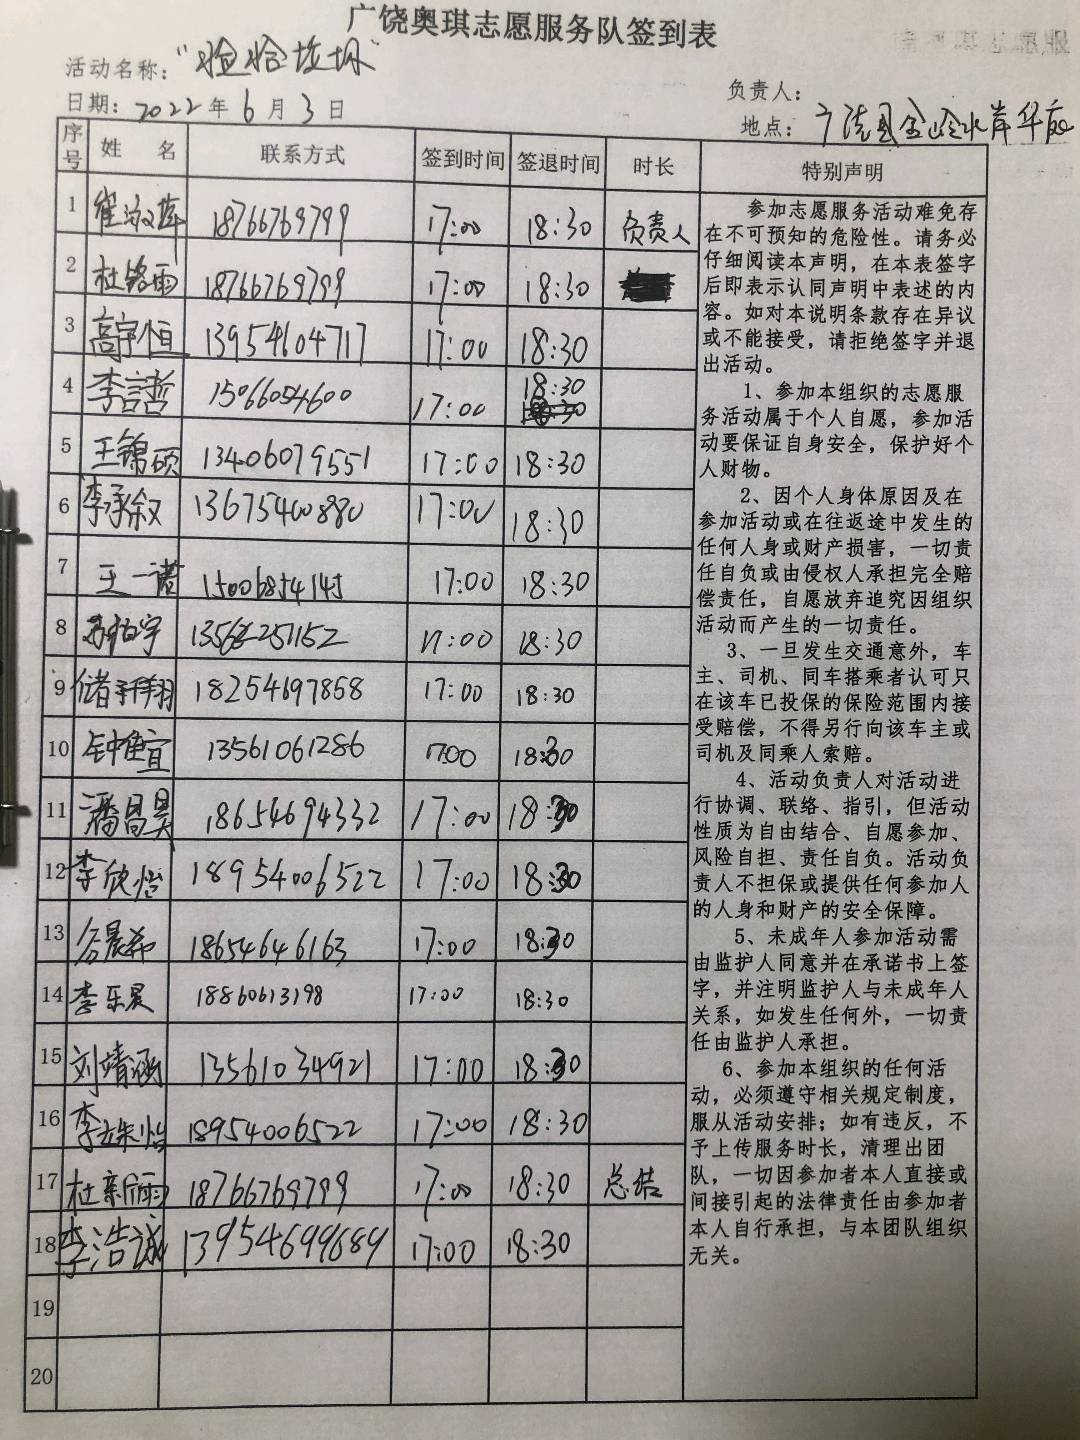 广饶奥琪志愿服务队签到表
活动名称：“捡拾垃圾”
日期：2022年6月3日
负责人：
地点：广饶县金岭水岸华庭
序号 姓名 联系方式 签到时间 签退时间 时长 特别声明
1 崔 18766769799 17:00 18:30 负责人
2 杜铭雨 18766769799 17:00 18:30
3 高宇恒 13954604717 17:00 18:30
4 李言哲 15066054600 17:00 18:30
5 王锦硕 13406079551 17:00 18:30
6 李承叙 13675400880 17:00 18:30
7 王一诺 15006854145 17:00 18:30
8 苏柏宇 17:00 18:30
9 储 翔 18254697858 17:00 18:30
10 钟 宜 13561061286 17:00 18:30
11 潘昌昊 18654694332 17:00 18:30
12 李欣怡 18954006522 17:00 18:30
13 谷晨希 18654646163 17:00 18:30
14 李乐昊 18860613198 17:00 18:30
15 刘靖涵 13561034921 17:00 18:30
16 李姝怡 18954006522 17:00 18:30
17 杜新雨 18766769799 17:00 18:30 总结
18 李浩诚 13954699689 17:00 18:30
19
20
参加志愿服务活动难免存
在不可预知的危险性。请务必
仔细阅读本声明，在本表签字
后即表示认同声明中表述的内
容。如对本说明条款存在异议
或不能接受，请拒绝签字并退
出活动。
1、参加本组织的志愿服
务活动属于个人自愿，参加活
动要保证自身安全，保护好个
人财物。
2、因个人身体原因及在
参加活动或在往返途中发生的
任何人身或财产损害，一切责
任自负或由侵权人承担完全赔
偿责任，自愿放弃追究因组织
活动而产生的一切责任。
3、一旦发生交通意外，车
主、司机、同车搭乘者认可只
在该车已投保的保险范围内接
受赔偿，不得另行向该车主或
司机及同乘人索赔。
4、活动负责人对活动进
行协调、联络、指引，但活动
性质为自由结合、自愿参加、
风险自担、责任自负。活动负
责人不担保或提供任何参加人
的人身和财产的安全保障。
5、未成年人参加活动需
由监护人同意并在承诺书上签
字，并注明监护人与未成年人
关系，如发生任何外，一切责
任由监护人承担。
6、参加本组织的任何活
动，必须遵守相关规定制度，
服从活动安排；如有违反，不
予上传服务时长，清理出团
队，一切因参加者本人直接或
间接引起的法律责任由参加者
本人自行承担，与本团队组织
无关。